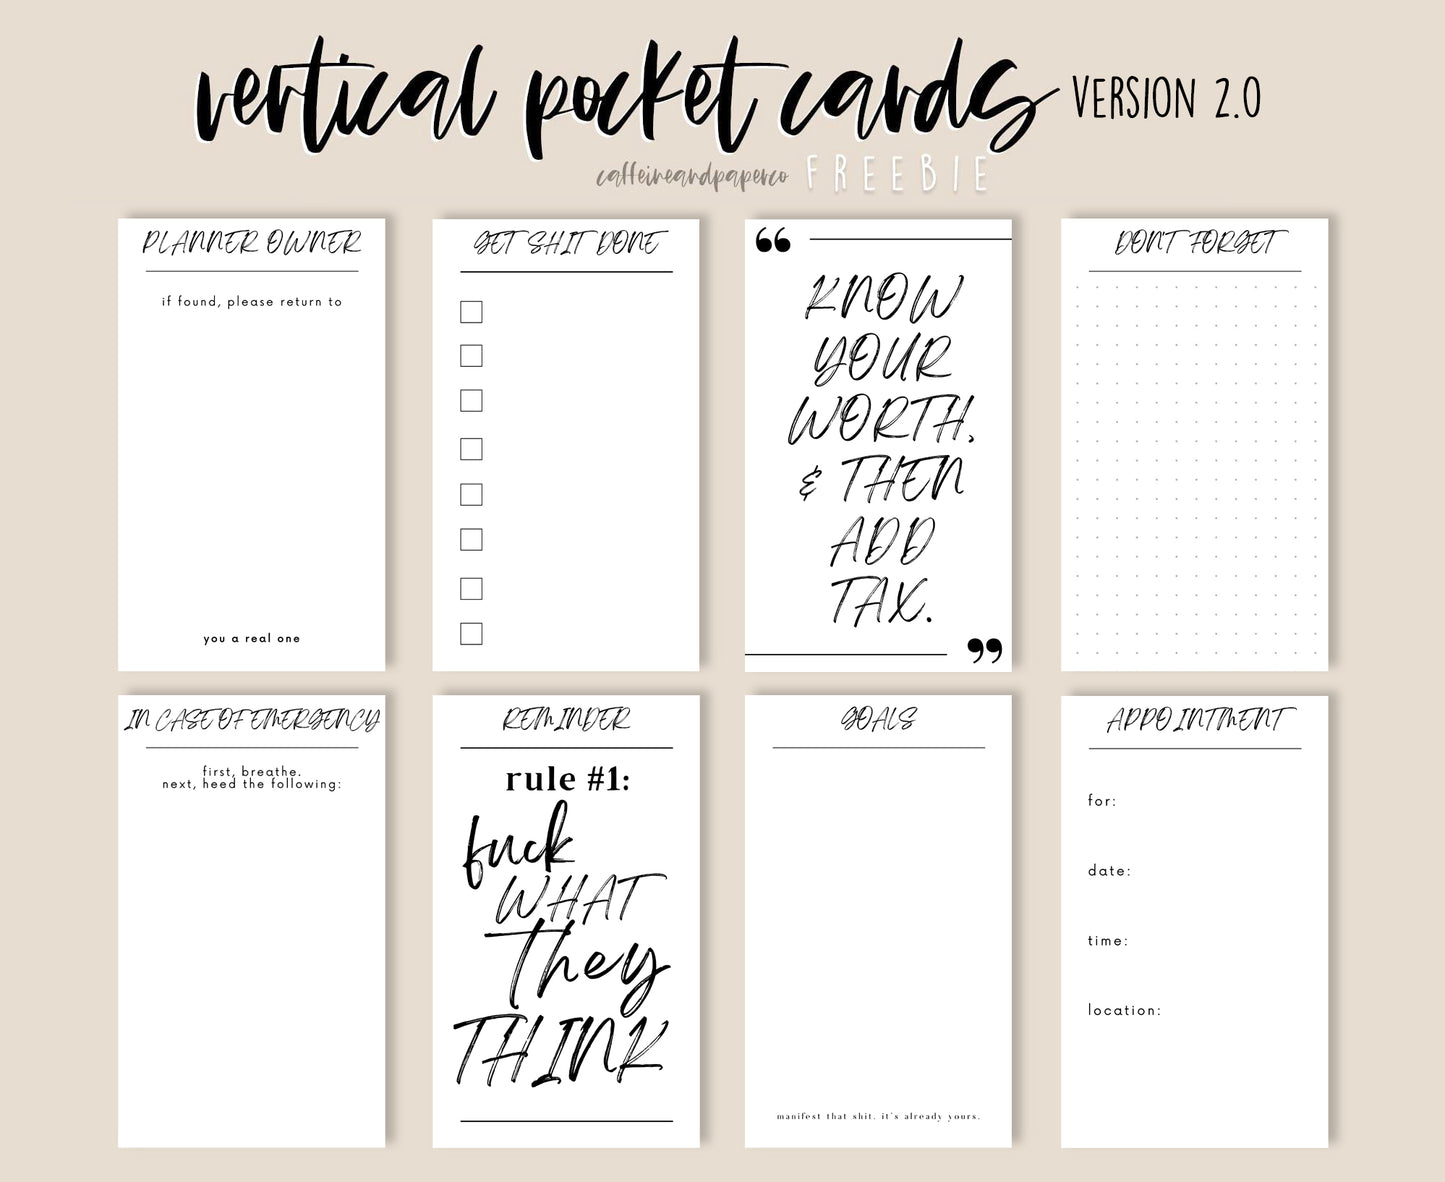 vertical pocket cards VERSION 2.0
caffeineandpaperco FREEBIE
PLANNER OWNER
if found, please return to
you a real one
GET SHIT DONE
“
KNOW
YOUR
WORTH,
& THEN
ADD
TAX.
”
DON'T FORGET
IN CASE OF EMERGENCY
first, breathe.
next, heed the following:
REMINDER
rule #1:
fuck
WHAT
They
THINK
GOALS
manifest that shit. it's already yours.
APPOINTMENT
for:
date:
time:
location: